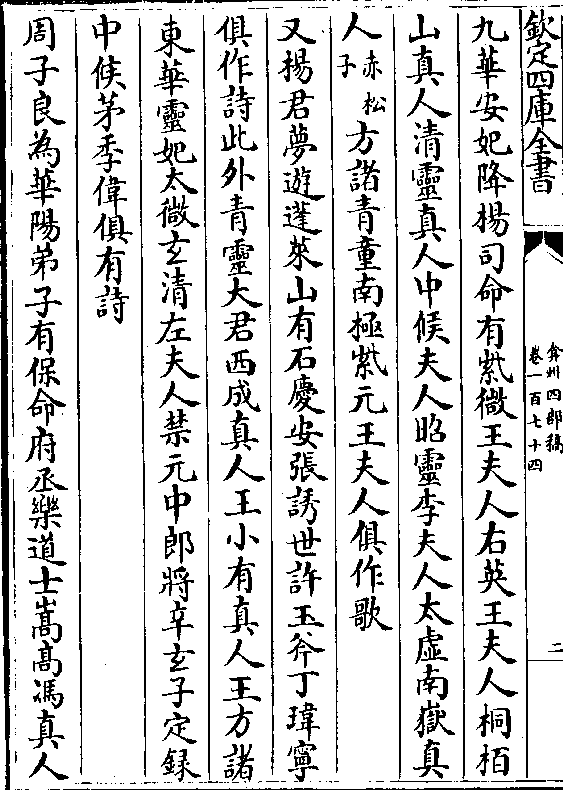 欽定四庫全書
弇州四部稿
卷一百七十四
二
九華安妃降楊司命有紫微王夫人右英王夫人桐栢
山真人清靈真人中候夫人昭靈李夫人太虛南嶽真
人赤松子方諸青童南極紫元王夫人俱作歌
又楊君夢遊蓬萊山有石慶安張誘世許玉斧丁瑋寧
俱作詩此外青靈大君西成真人王小有真人王方諸
東華靈妃太微玄清左夫人禁元中郎將辛玄子定録
中候茅季偉俱有詩
周子良為華陽弟子有保命府丞樂道士嵩高馮真人